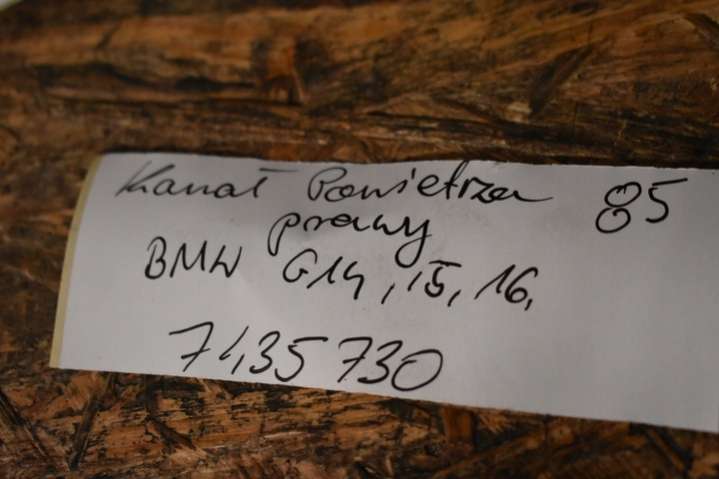 Kanał Powietrza 85
prawy
BMW G14, 15, 16,
7435730